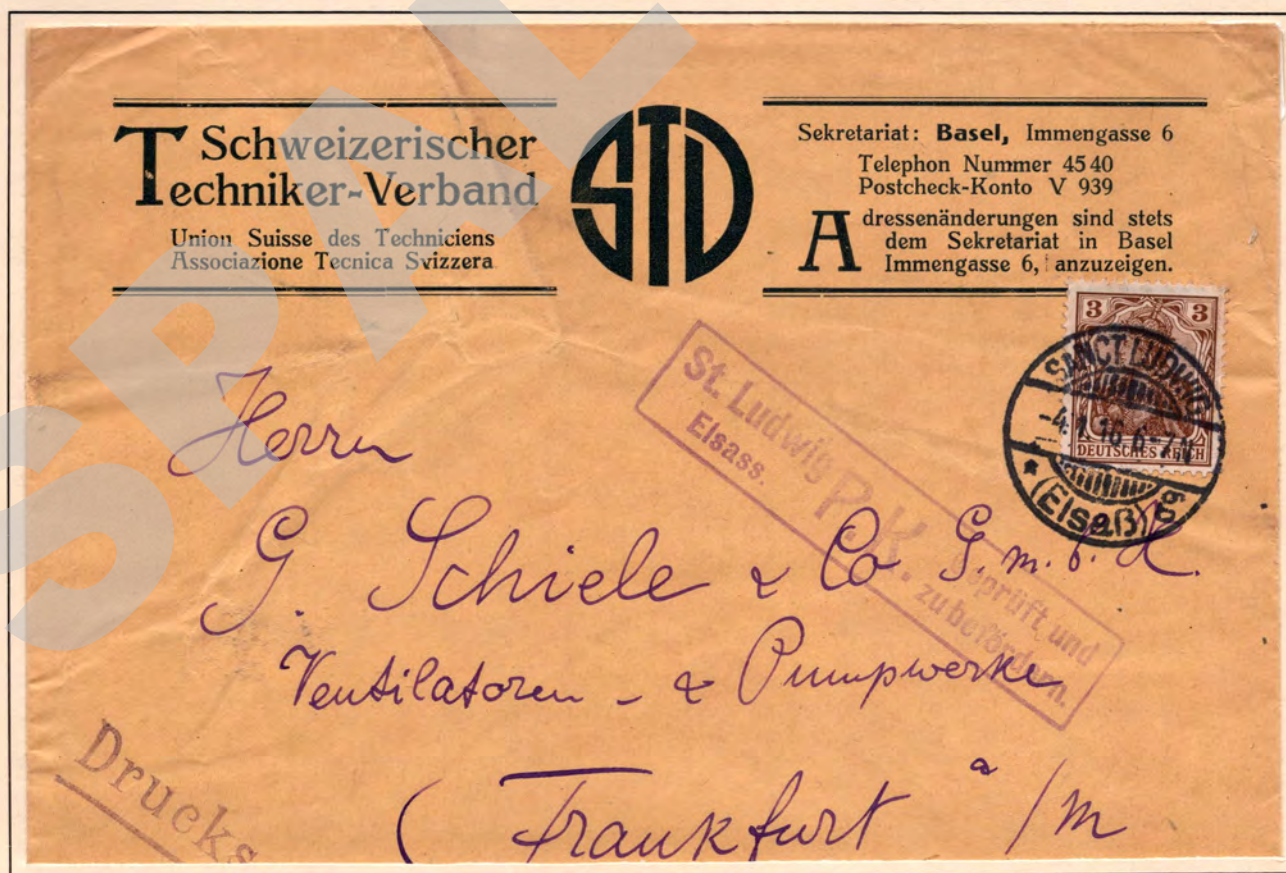 Schweizerischer
Techniker-Verband
Union Suisse des Techniciens
Associazione Tecnica Svizzera
STV
Sekretariat: Basel, Immengasse 6
Telephon Nummer 45 40
Postcheck-Konto V 939
Adressenänderungen sind stets
dem Sekretariat in Basel
Immengasse 6, anzuzeigen.
3 3
DEUTSCHES REICH
SANCT LUDWIG
-4.1.16.6-7N
* (Elsaß)
St. Ludwig
Elsass.
P.K.
Geprüft und
zu befördern.
Herrn
G. Schiele & Co G.m.b.H.
Ventilatoren - & Pumpwerke
( Frankfurt a /m
Drucks
SPAL